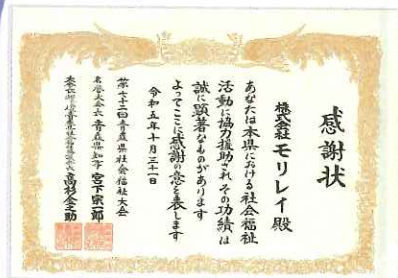 感謝状
株式会社モリレイ殿
あなたは本県における社会福祉
活動に協力援助されその功績は
誠に顕著なものがあります
よってここに感謝の意を表します
令和五年十月三十一日
第七十二回青森県社会福祉大会
名誉大会長青森県知事 宮下宗一郎
大会長 青森県社会福祉協議会長 高杉金之助